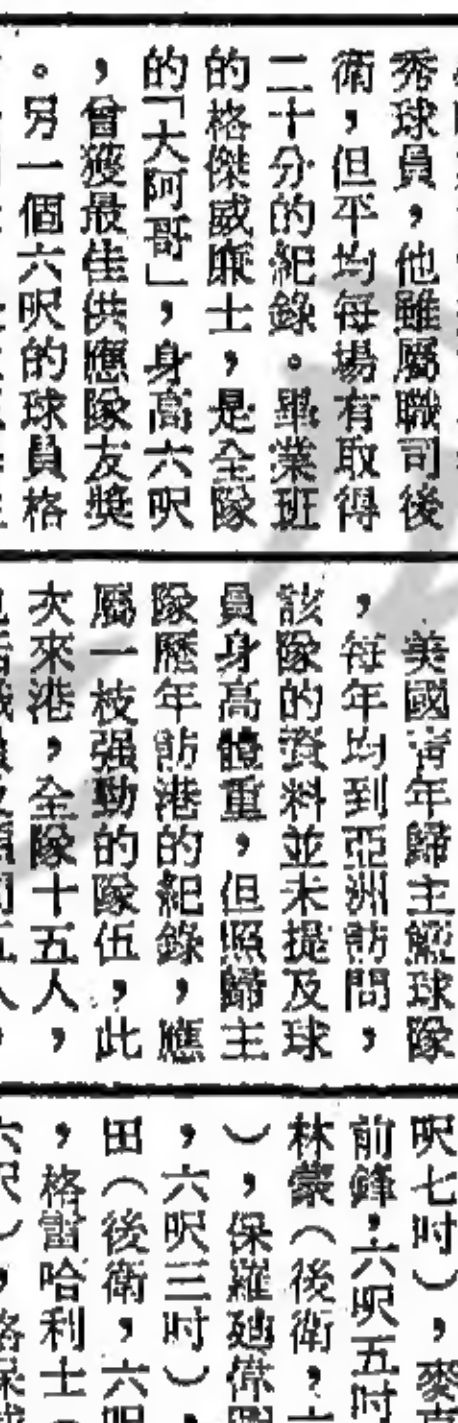 秀球員，他雖屬職司後
衛，但平均每場有取得
二十分的紀錄。畢業班
的格傑威廉士，是全隊
的「大阿哥」，身高六呎
，曾獲最佳供應隊友獎
。另一個六呎的球員格
美國青年歸主籃球隊
，每年均到亞洲訪問，
該隊的資料並未提及球
員身高體重，但照歸主
隊歷年訪港的紀錄，應
屬一枝强勁的隊伍，此
次來港，全隊十五人，
呎七吋），麥
前鋒，六呎五吋
林蒙（後衛，六
），保羅廸偉
，六呎三吋），
田（後衛，六呎
，格雷哈利士（
六呎），格